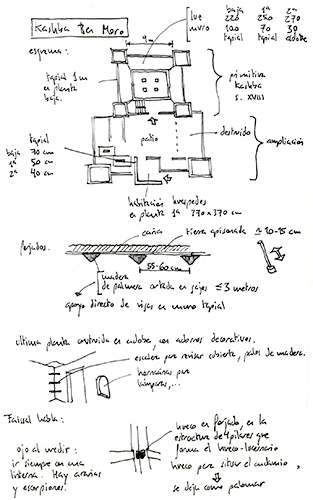 Kashba Ben Moro
9 m
baja 1ª 2ª
luz 220 280 270
muro 100 70 30
tapial tapial adobe
esquema:
tapial 1 m
en planta
baja.
primitiva
kashba
s. XVIII
patio
destruido
ampliación
tapial
baja 70 cm
1ª 50 cm
2ª 40 cm
habitación huéspedes
en planta 1ª 370x370 cm
forjados.
caña
tierra apisonada ≃ 10-15 cm
55-60 cm
madera
de palmera cortada en gajos ≤ 3 metros
apoyo directo de vigas en muro tapial
última planta construida en adobe, con adornos decorativos.
escalera para revisar cubierta, palos de madera.
hornacinas para
lámparas,...
Faissal habla:
ojo al medir:
ir siempre con una
linterna. Hay arañas
y escorpiones.
hueco en forjado, en la
estructura de 4 pilares que
forma el hueco-lucernario
hueco para situar el andamio,
se deja como palomar